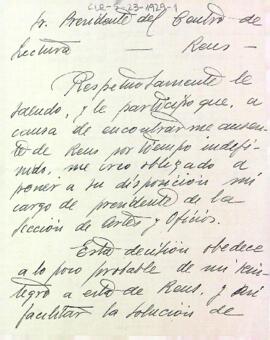 CLR-5-23-1929-1
Sr. Presidente del Centro de
Lectura — Reus —
Respetuosamente le
saludo, y le participo que, a
causa de encontrarme ausen-
te de Reus por tiempo indefi-
nido, me creo obligado a
poner a su disposición mi
cargo de presidente de la
Sección de Artes y Oficios.
Esta decisión obedece
a lo poco probable de mi rein-
tegro a esto de Reus, y así
facilitar la solución de